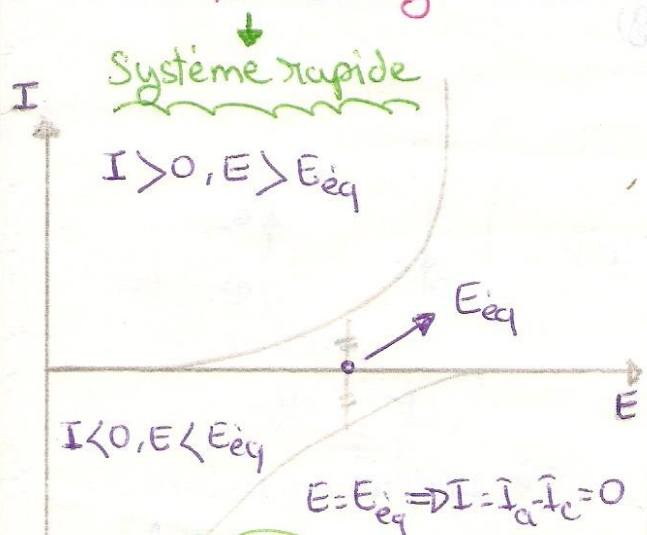 Système rapide
I
I>0, E>Eéq
Eéq
E
I<0, E<Eéq
E=Eéq ⇒ I=Ia-Ic=0